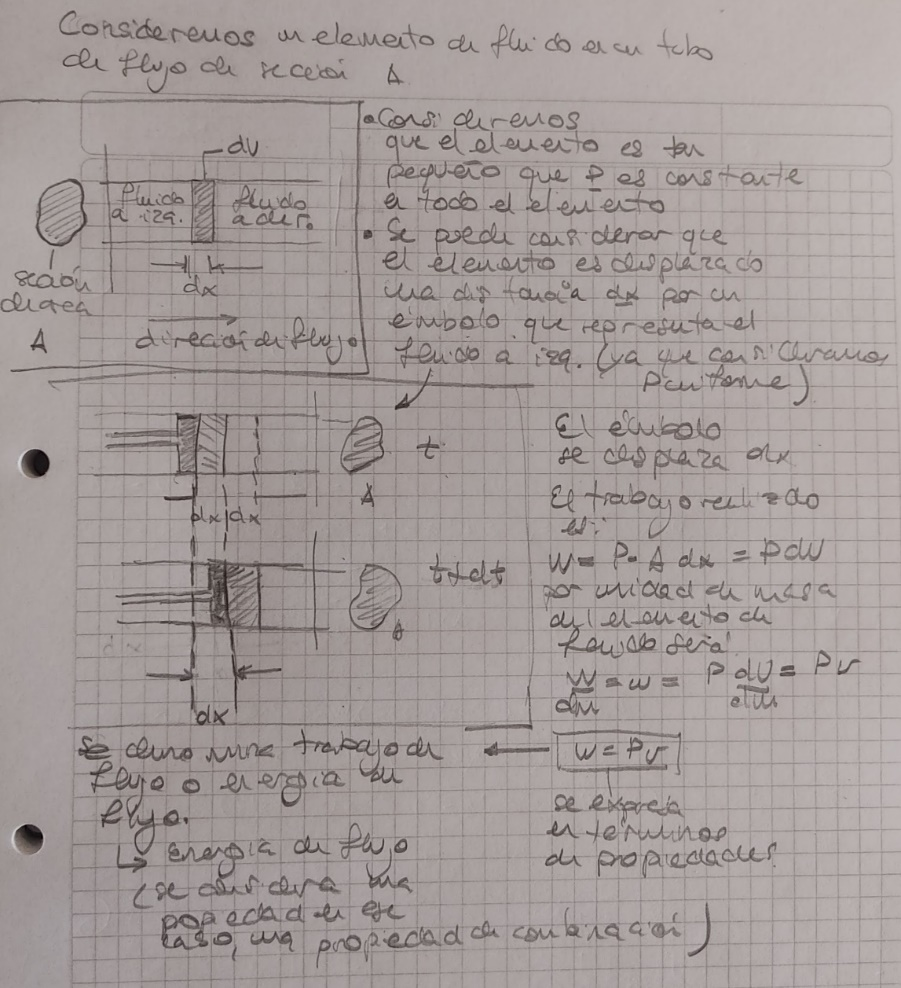 Consideremos un elemento de fluido en un tubo
de flujo de sección A
dV
fluido
a izq.
fluido
a der.
sección
de area
A
dx
dirección de flujo
• Consideremos
que el elemento es tan
pequeño que P es constante
en todo el elemento
• Se puede considerar que
el elemento es desplazado
una distancia dx por un
émbolo que representa el
fluido a izq. (ya que consideramos
P uniforme)
t
A
dx dx
t+dt
A
dx
dx
El émbolo
se desplaza dx
El trabajo realizado
es:
W = P · A dx = P dV
por unidad de masa
del elemento de
fluido será
W/dm = w = P dV/dm = Pv
w = Pv
se expresa
en términos
de propiedades.
Se denomina trabajo de
flujo o energía de
flujo.
↳ energía de flujo
(se considera una
propiedad en ese
caso, una propiedad de combinación)